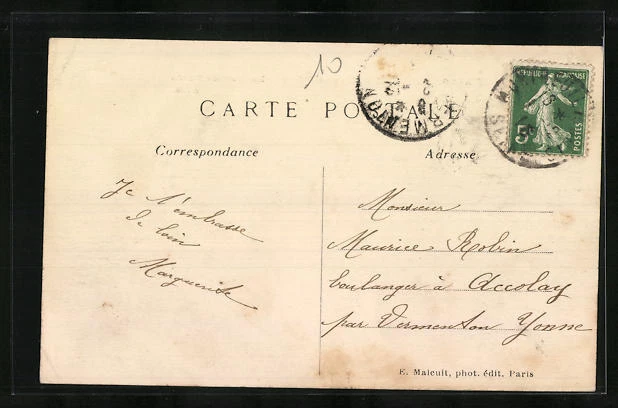 10
CARTE POSTALE
VERMENTON
REPUBLIQUE FRANÇAISE
5c
POSTES
Correspondance
Adresse
Je t'embrasse
de loin
Marguerite
Monsieur
Maurice Robin
boulanger à Accolay
par Vermenton Yonne
E. Malcuit, phot. édit. Paris